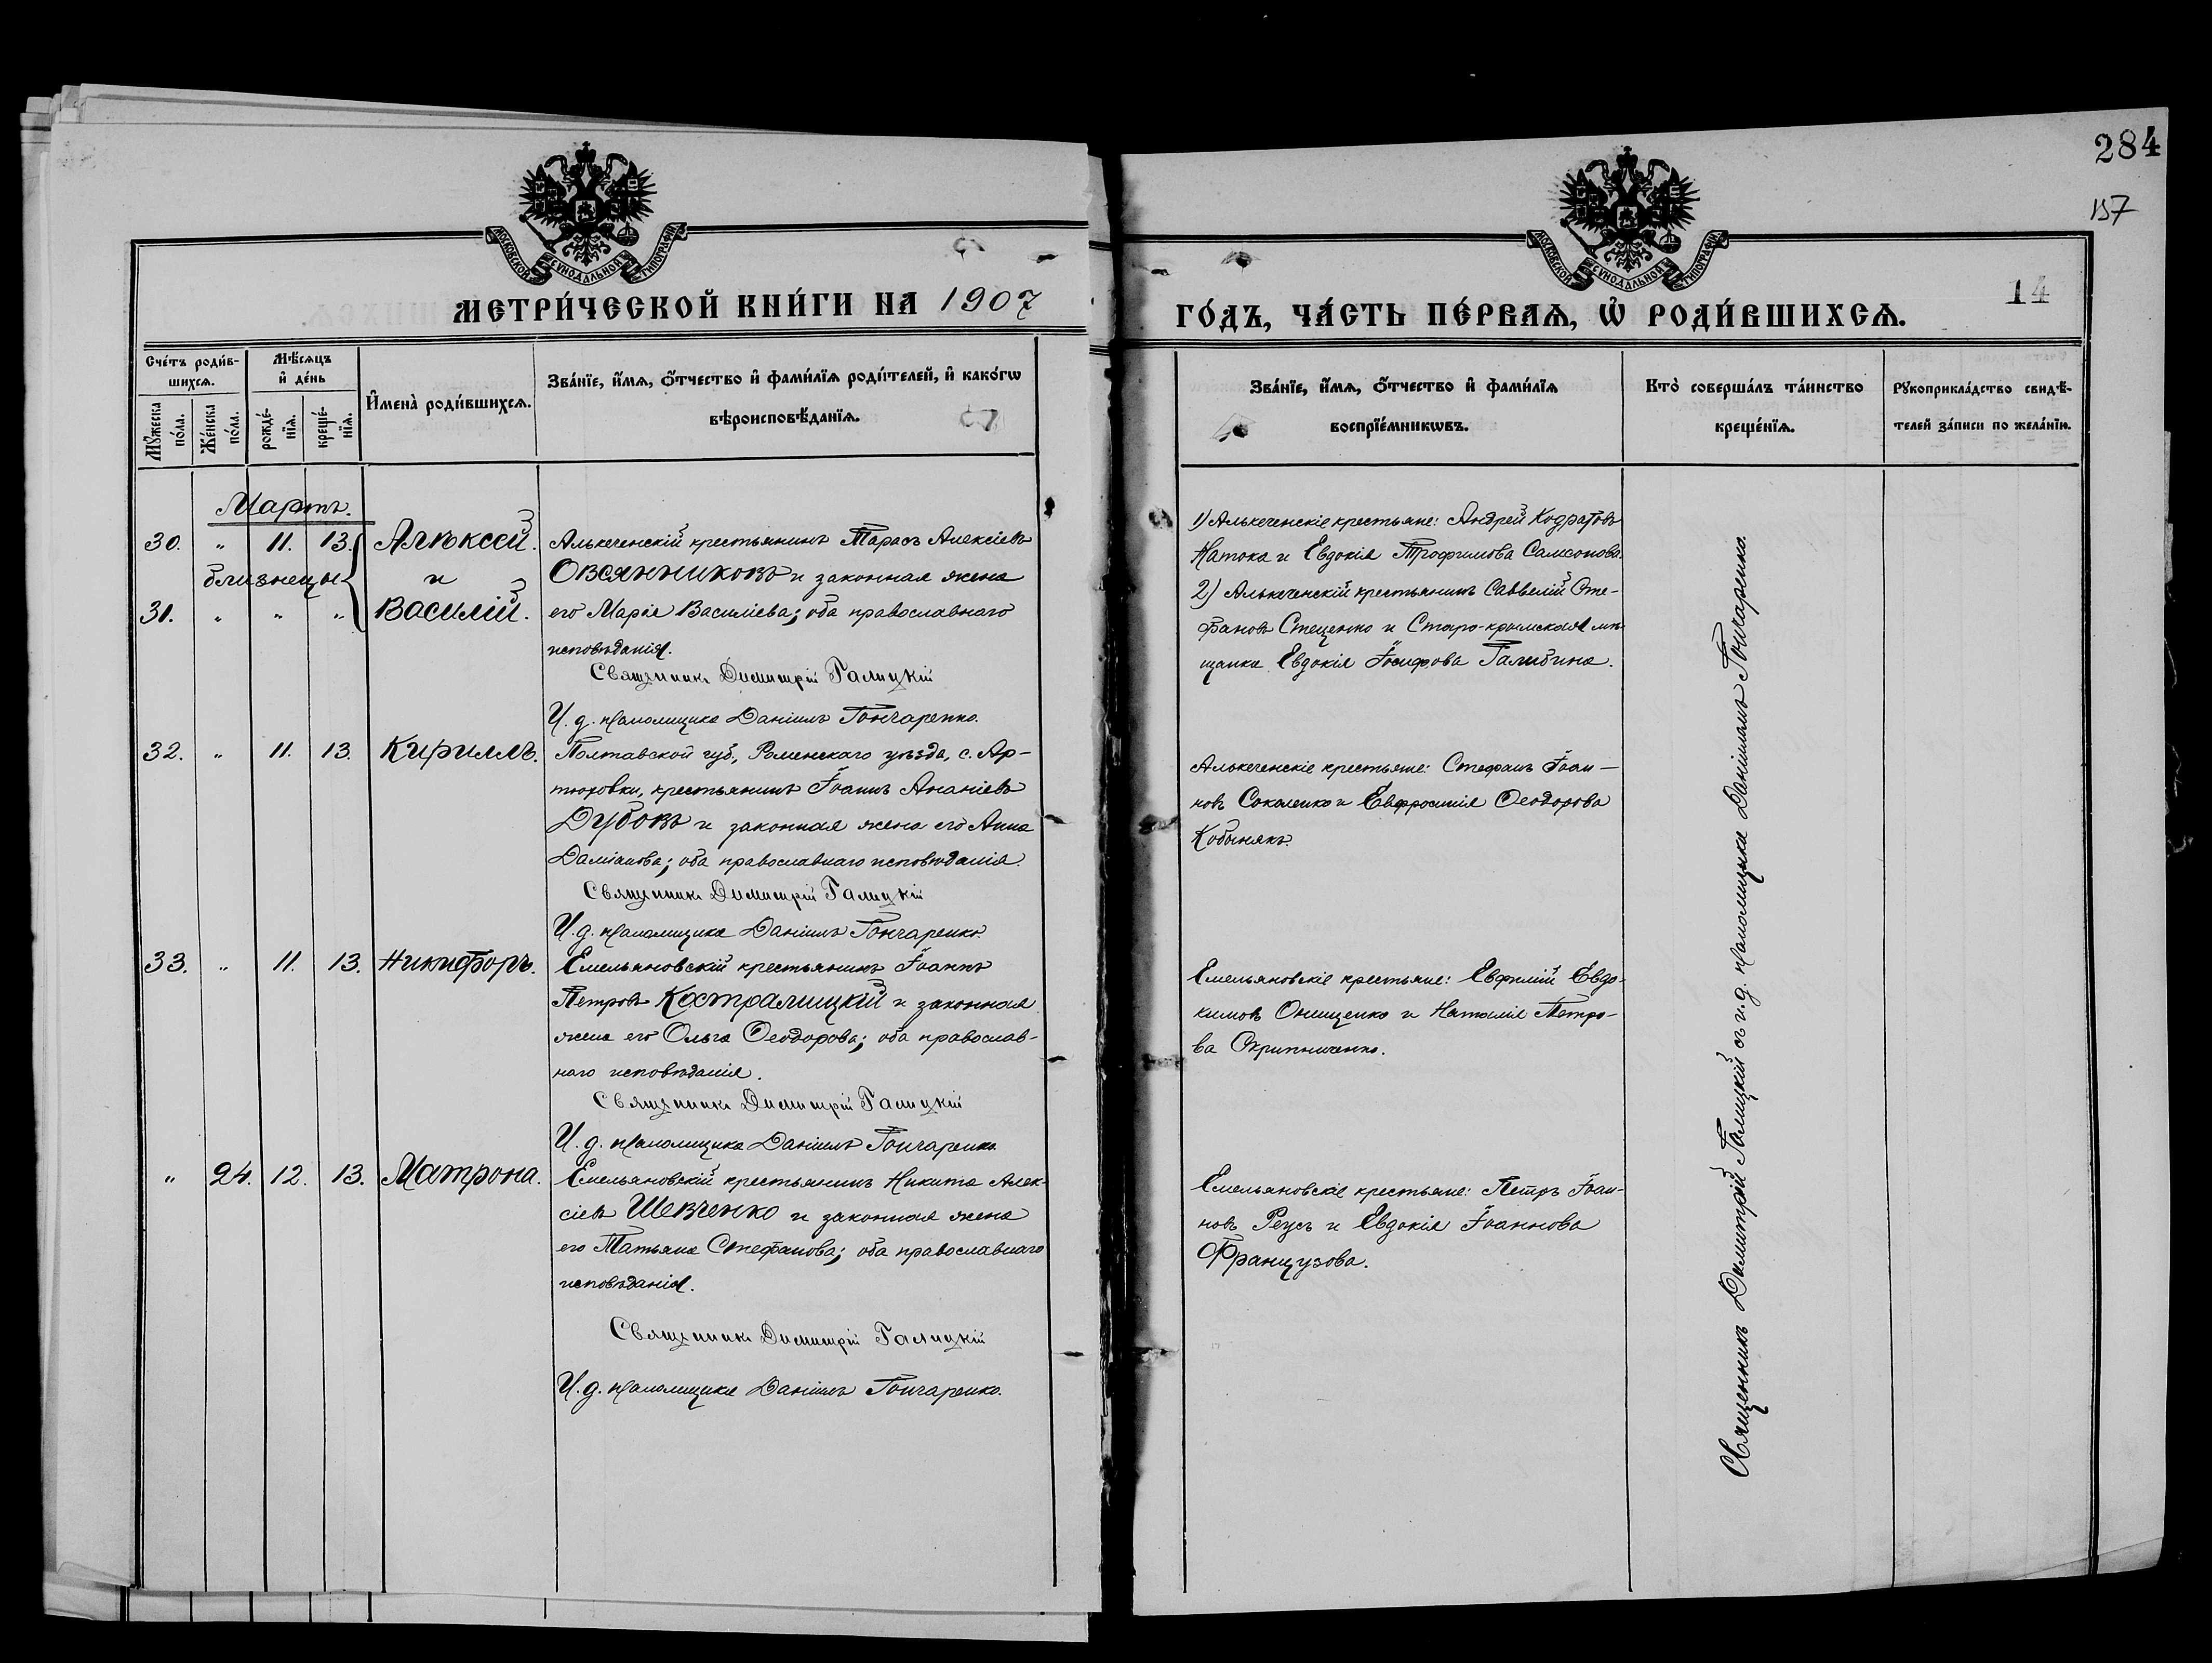 284
157
14
МОСКОВСКОЙ СѴНОДАЛЬНОЙ ТИПОГРАФІИ
МОСКОВСКОЙ СѴНОДАЛЬНОЙ ТИПОГРАФІИ
МЕТРИ́ЧЕСКОЙ КНИ́ГИ НА 1907
ГО́ДЪ, ЧА́СТЬ ПЕ́РВАѦ, Ѽ РОДИ́ВШИХСѦ.
Сче́тъ роди́в-
шихсѧ.
Мѣ́сѧцъ
и҆ де́нь
Мꙋ́жеска
по́ла.
Же́нска
по́ла.
рожде́-
нїѧ.
креще́-
нїѧ.
И҆мена̀ роди́вшихсѧ.
Зва́нїе, и҆́мѧ, ѻ҆́тчество и҆ фами́лїѧ роди́телей, и҆ како́гѡ
вѣроисповѣ́данїѧ.
Зва́нїе, и҆́мѧ, ѻ҆́тчество и҆ фами́лїѧ
воспрїе́мникѡвъ.
Кто̀ соверша́лъ та́инство
креще́нїѧ.
Рꙋкоприкла́дство свидѣ́-
телей за́писи по жела́нїю.
Мартъ.
30. " 11. 13. Алѣксей.
близнецы и
31. " " " Василій.
Алькеченскій крестьянинъ Тарасъ Алексіевъ
Овсянниковъ и законная жена
его Марія Василіева; оба православнаго
исповѣданія.
Священникъ Димитрій Галицкій
И. д. псаломщика Даніилъ Гончаренко.
1) Алькеченскіе крестьяне: Андрей Кодратовъ
Натока и Евдокія Трофимова Самсонова.
2) Алькеченскій крестьянинъ Саввелій Сте-
фановъ Стеценко и Старо-крымская мѣ-
щанка Евдокія Іосифова Галибина.
32. " 11. 13. Кириллъ.
Полтавской губ., Роменскаго уѣзда, с. Ар-
тюховки, крестьянинъ Іоаннъ Ананіевъ
Дубовъ и законная жена его Анна
Даміанова; оба православнаго исповѣданія.
Священникъ Димитрій Галицкій
И. д. псаломщика Даніилъ Гончаренко.
Алькеченскіе крестьяне: Стефанъ Іоан-
новъ Соколенко и Евфросинія Ѳеодорова
Кобынякъ.
33. " 11. 13. Никифоръ.
Емельяновскій крестьянинъ Іоаннъ
Петровъ Костралицкій и законная
жена его Ольга Ѳеодорова; оба православ-
наго исповѣданія.
Священникъ Димитрій Галицкій
И. д. псаломщика Даніилъ Гончаренко.
Емельяновскіе крестьяне: Евфилій Евдо-
кимовъ Онищенко и Наталія Петро-
ва Скрипниченко.
" 24. 12. 13. Матрона.
Емельяновскій крестьянинъ Никита Алек-
сіевъ Шевченко и законная жена
его Татьяна Стефанова; оба православнаго
исповѣданія.
Священникъ Димитрій Галицкій
И. д. псаломщика Даніилъ Гончаренко.
Емельяновскіе крестьяне: Петръ Іоан-
новъ Реусъ и Евдокія Іоаннова
Французова.
Священникъ Димитрій Галицкій съ и. д. псаломщика Даніиломъ Гончаренко.